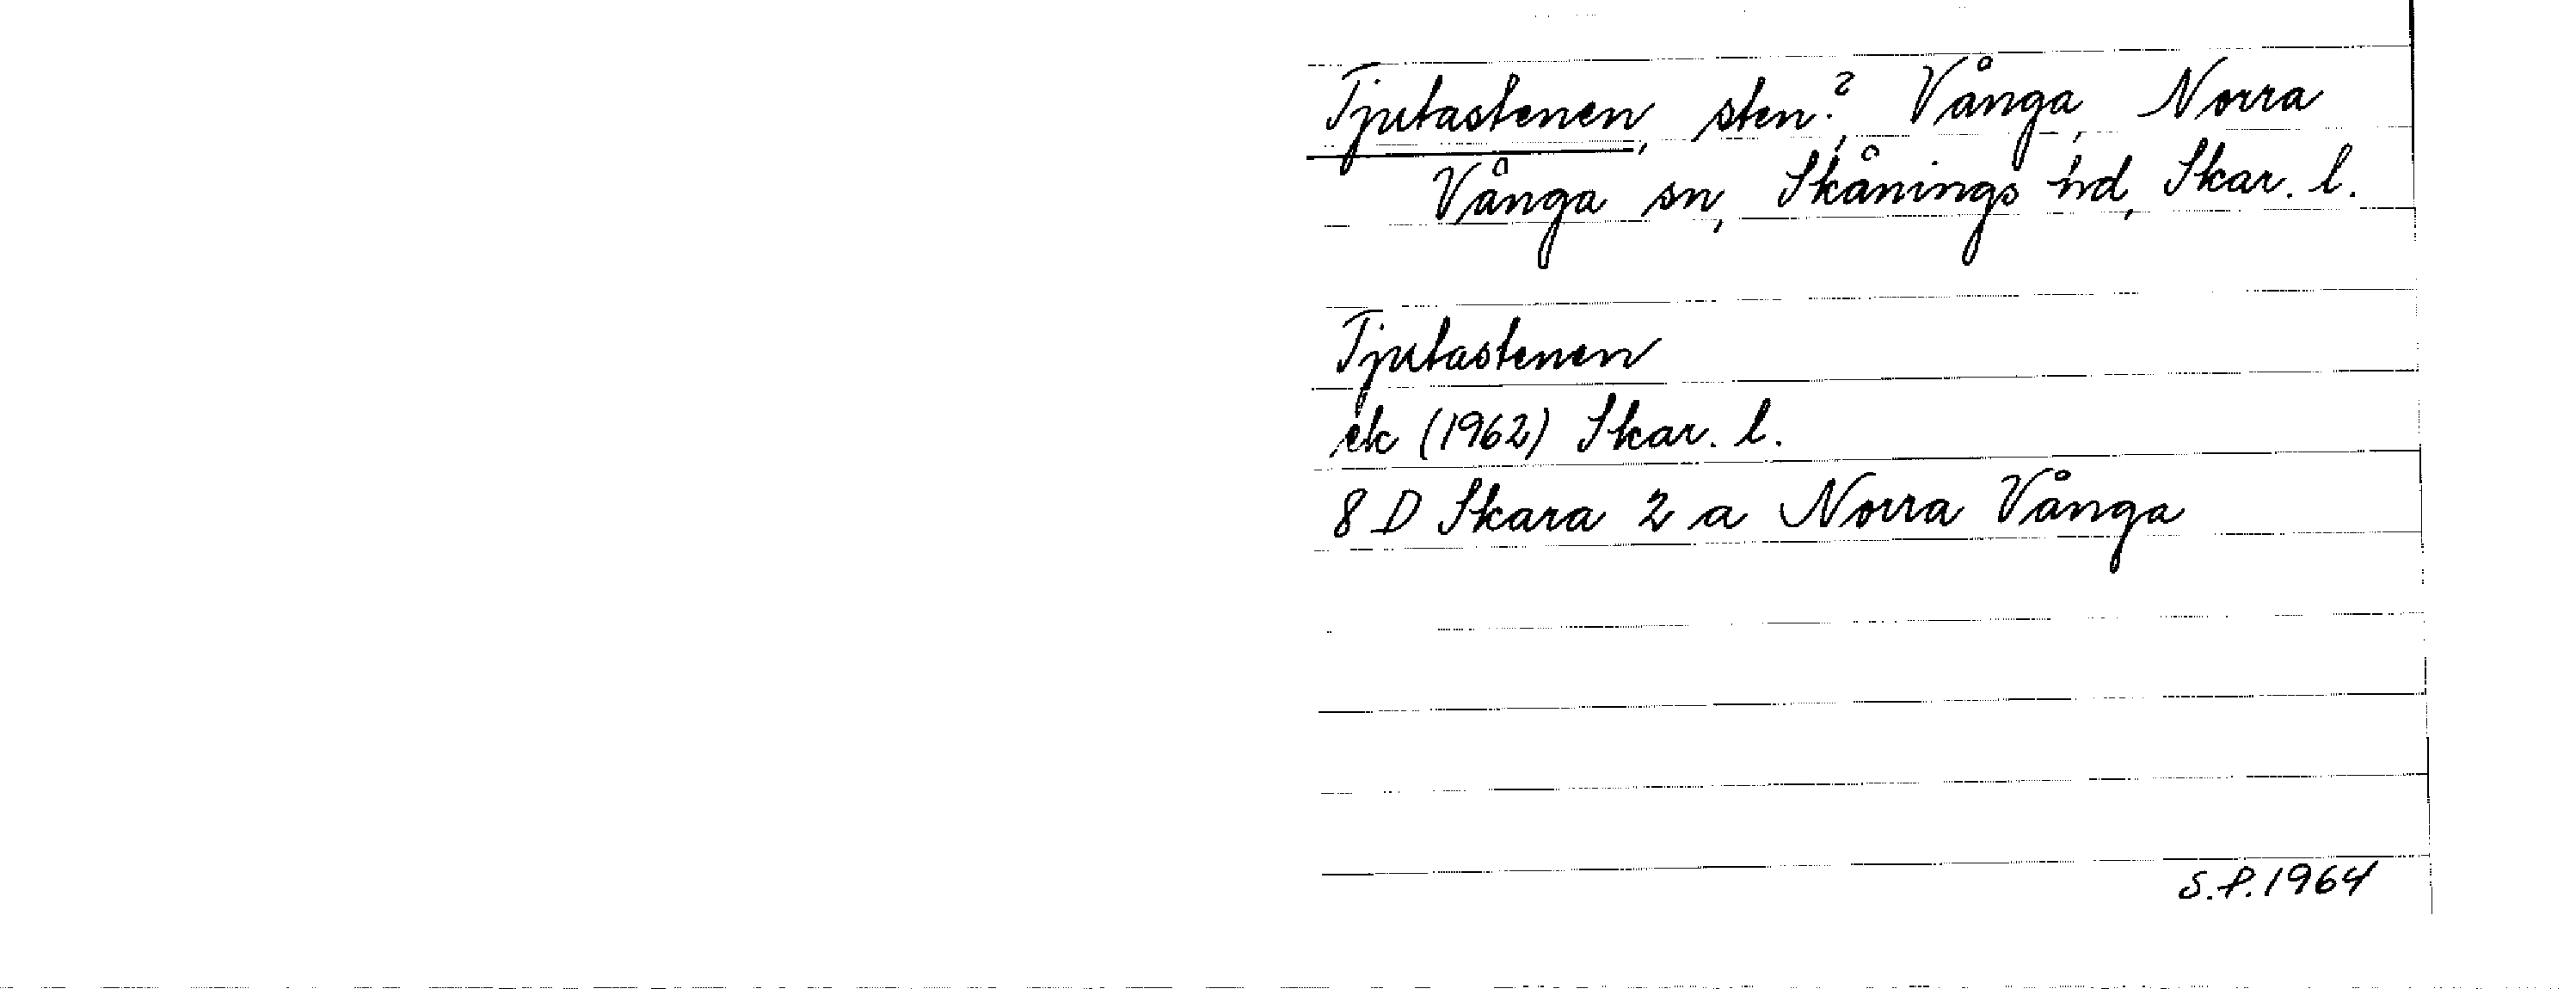 Tjutastenen, sten?, Vånga, Norra
Vånga sn, Skånings hd, Skar. l.
Tjutastenen
ek (1962) Skar. l.
8 D Skara 2 a Norra Vånga
S.P. 1964